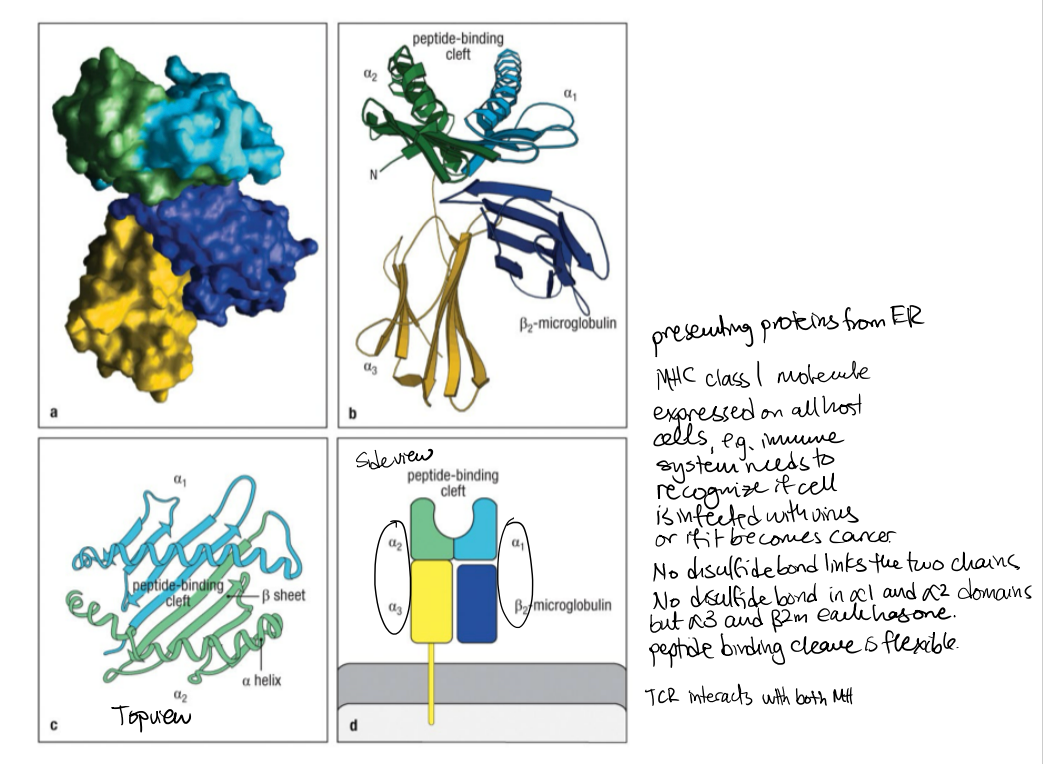 peptide-binding
cleft
α2
α1
N
β2-microglobulin
α3
a
b
α1
peptide-binding
cleft
β sheet
α helix
α2
Topview
c
Sideview
peptide-binding
cleft
α2
α1
α3
β2-microglobulin
d
presenting proteins from ER
MHC class I molecule
expressed on all host
cells, e.g. immune
system needs to
recognize if cell
is infected with virus
or if it becomes cancer
No disulfide bond links the two chains
No disulfide bond in α1 and α2 domains
but α3 and β2m each has one.
peptide binding cleave is flexible.
TCR interacts with both MH